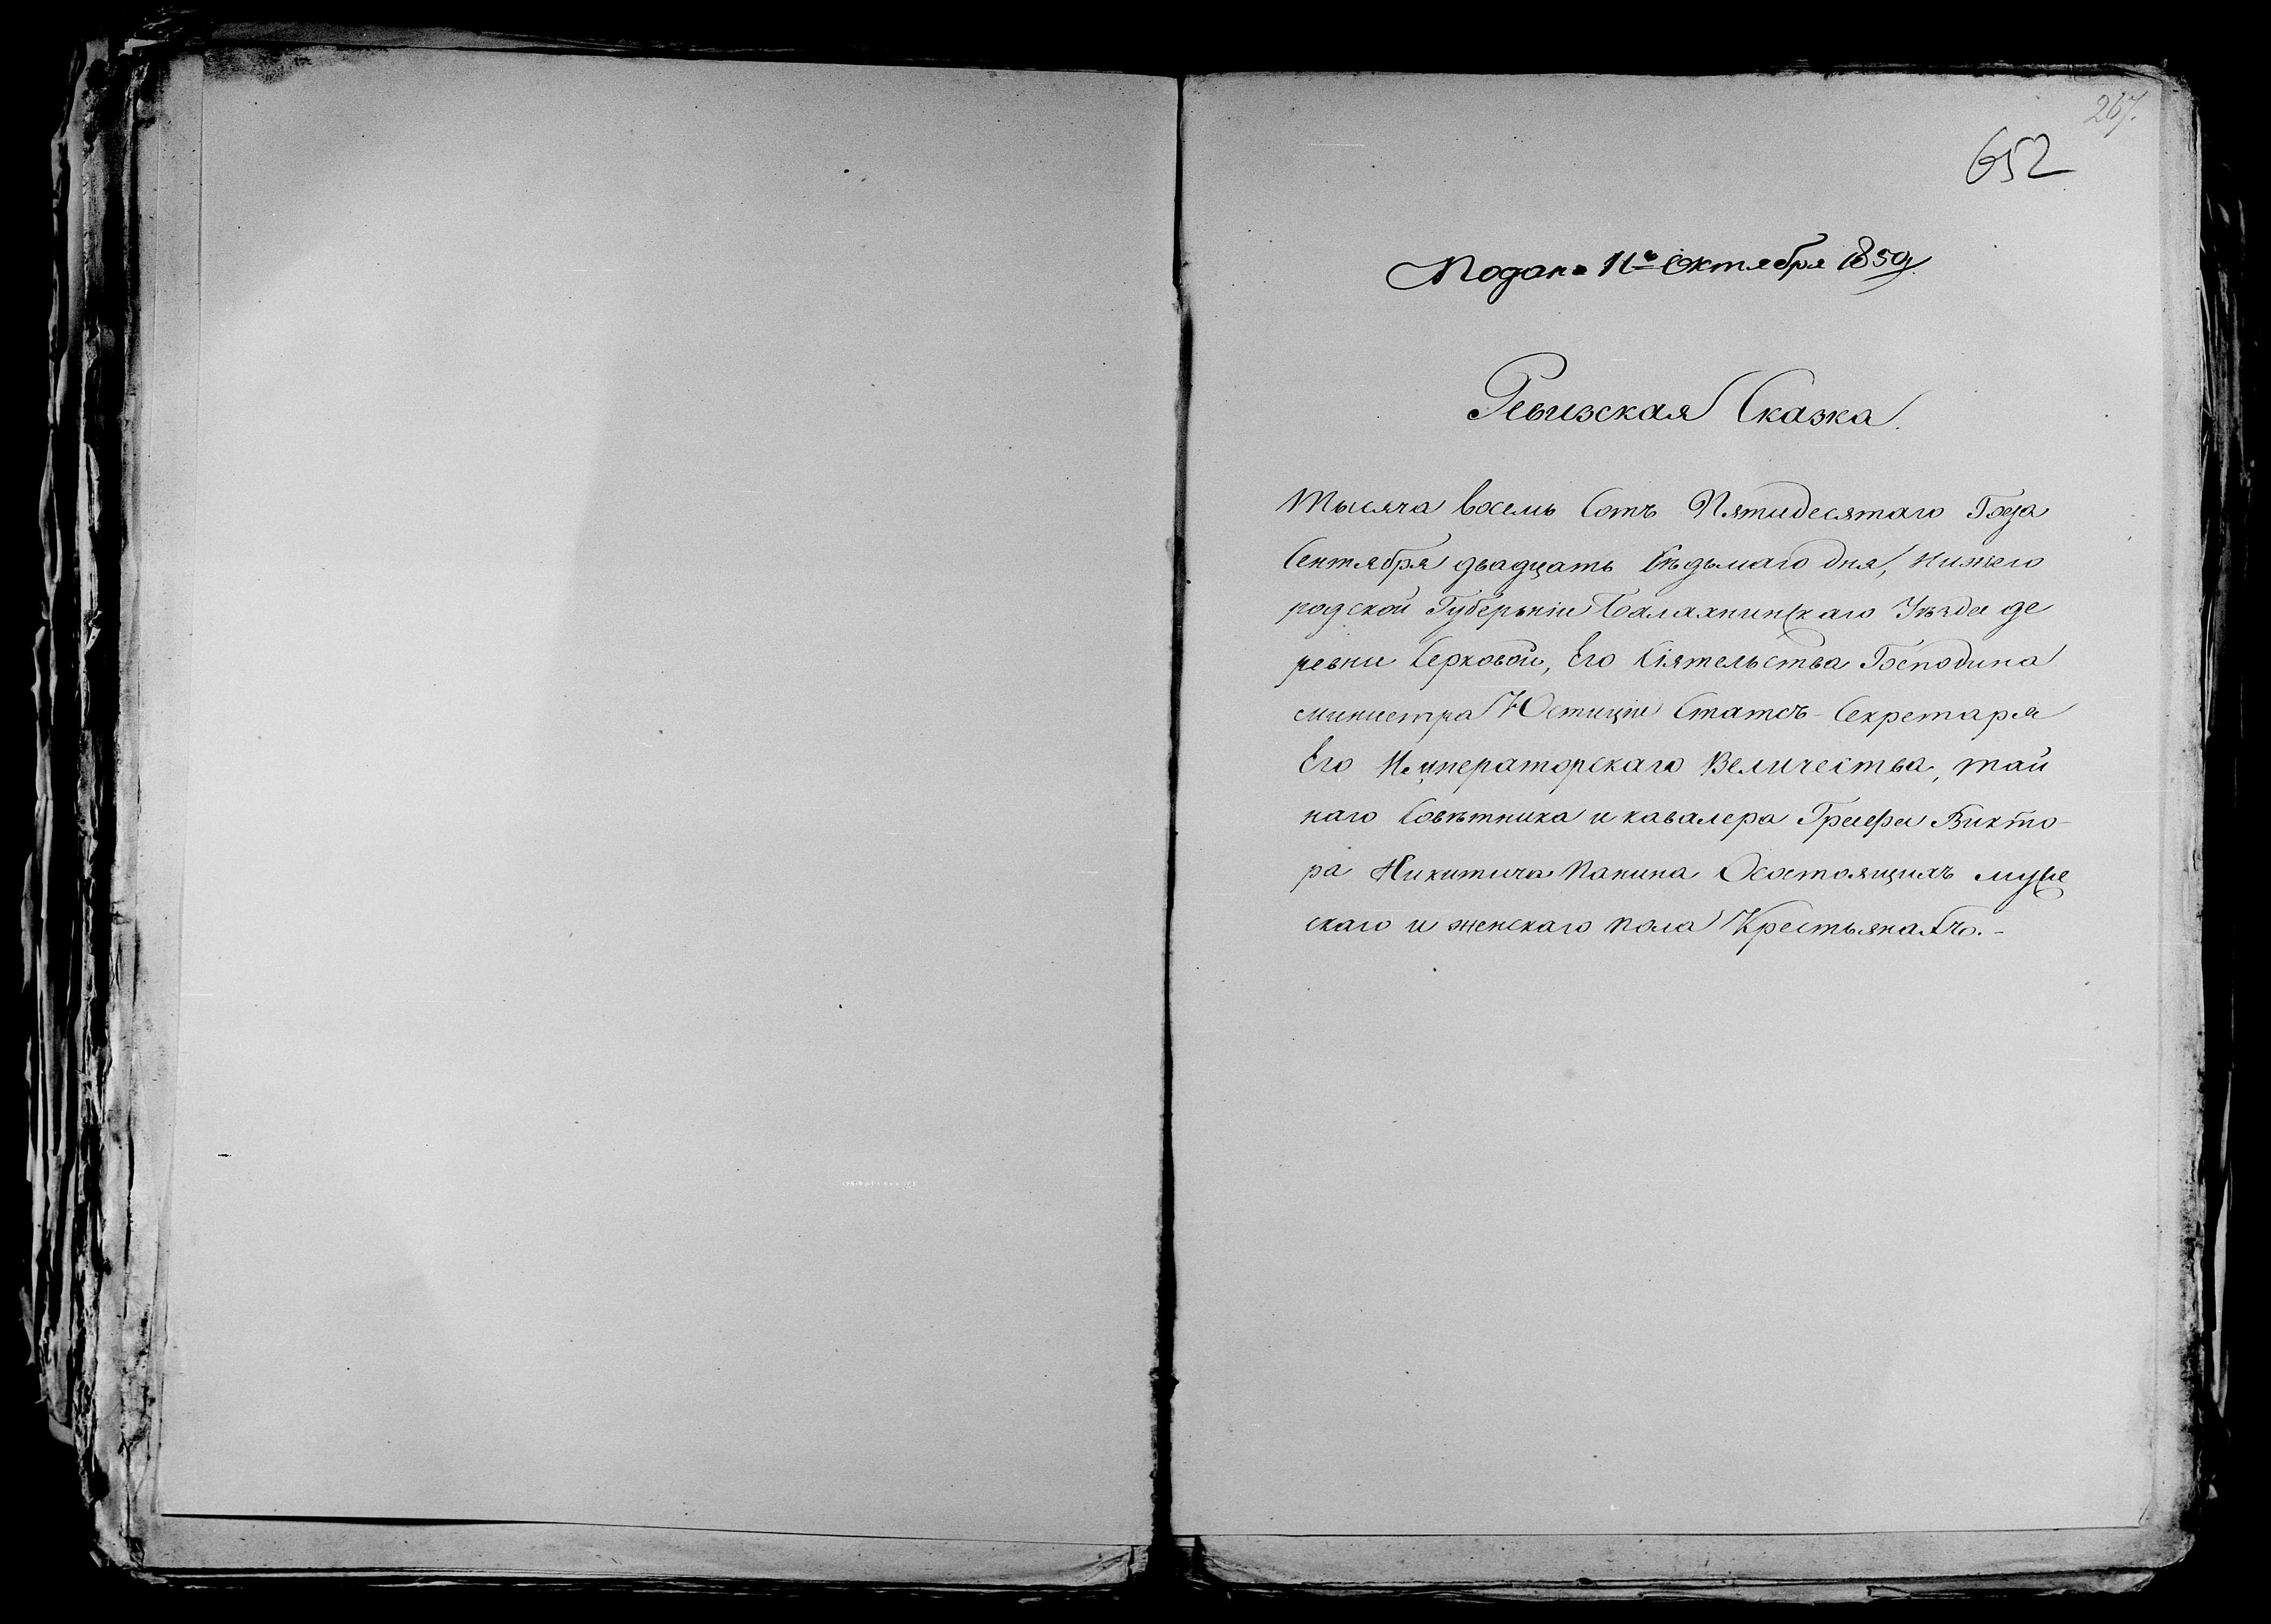 267.
652
Подана 11го Октября 1850
Ревизская Сказка.
Тысяча восемь Сотъ Пятидесятаго Года
Сентября двадцать Седьмаго дня, Нижего
родской Губерніи Балахнинскаго Уѣзда де
ревни Серковой, Его Сіятельства Господина
Министра Юстиціи Статсъ-Секретаря
Его Императорскаго Величества, тай
наго Совѣтника и кавалера Графа Викто-
ра Никитича Панина Осостоящихъ муже
скаго и женскаго пола Крестьянахъ.-